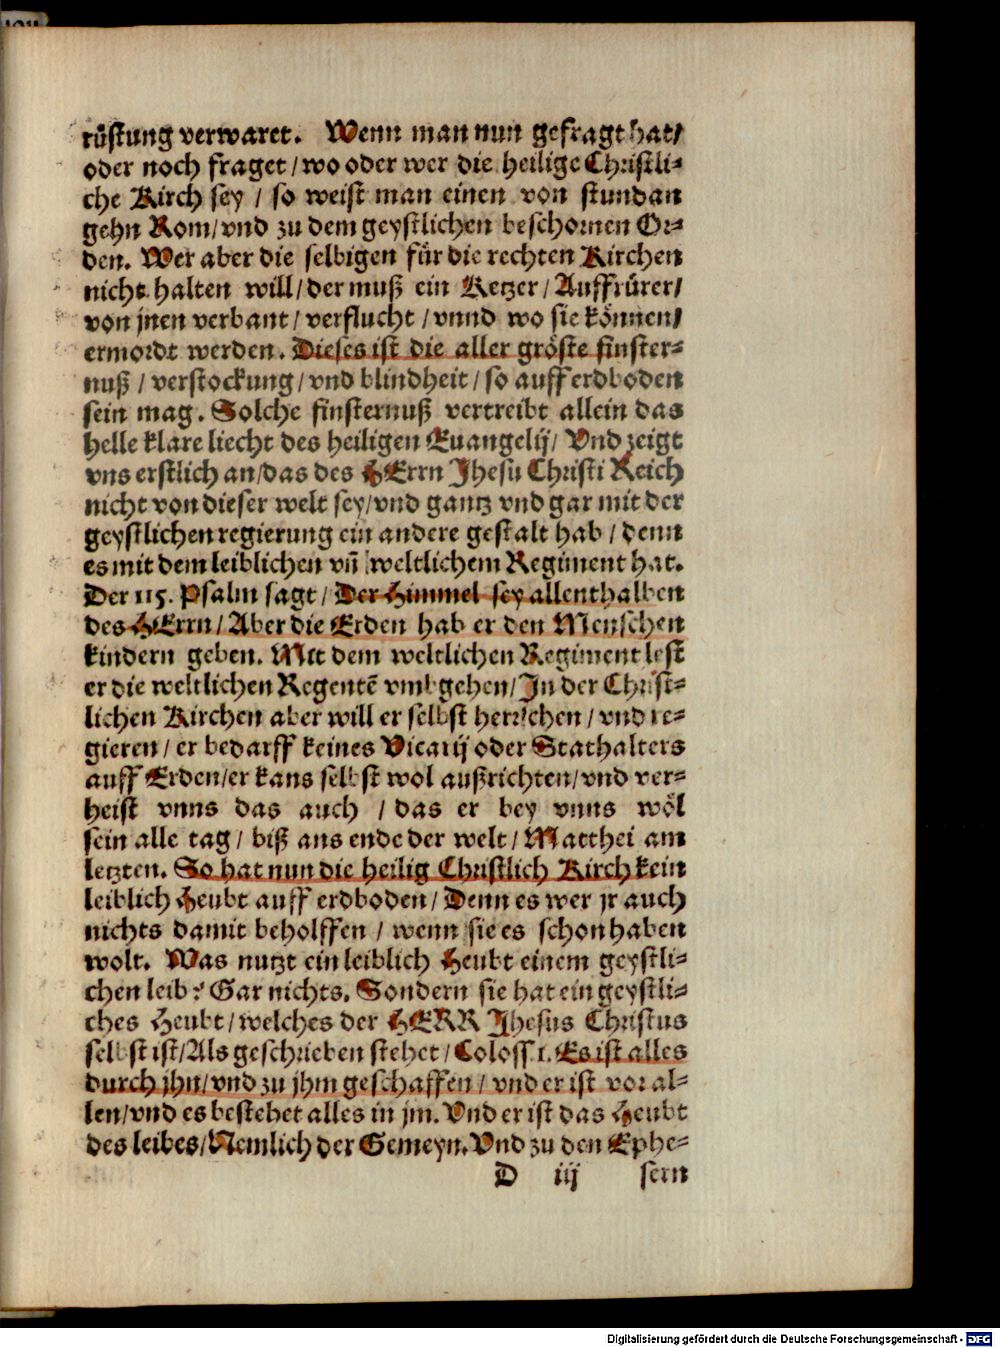 rüstung verwaret. Wenn man nun gefragt hat/
oder noch fraget/wo oder wer die heilige Christli-
che Kirch sey / so weist man einen von stundan
gehn Rom/vnd zu dem geystlichen beschornen Or-
den. Wer aber die selbigen für die rechten Kirchen
nicht halten will/der muß ein Ketzer/Auffrürer/
von jnen verbant/verflucht/vnnd wo sie können/
ermordt werden. Dieses ist die aller gröste finster-
nuß/verstockung/vnd blindheit/so auff erdboden
sein mag. Solche finsternuß vertreibt allein das
helle klare liecht des heiligen Euangelij/Vnd zeigt
vns erstlich an/das des HErrn Jhesu Christi Reich
nicht von dieser welt sey/vnd gantz vnd gar mit der
geystlichen regierung ein andere gestalt hab/denn
es mit dem leiblichen vñ weltlichem Regiment hat.
Der 115. Psalm sagt/Der Himmel sey allenthalben
des HErrn/Aber die Erden hab er den Menschen
kindern geben. Mit dem weltlichen Regiment lest
er die weltlichen Regentẽ vmbgehen/In der Christ-
lichen Kirchen aber will er selbst herrschen/vnd re-
gieren/er bedarff keines Vicarij oder Stathalters
auff Erden/er kans selbst wol außrichten/vnd ver-
heist vnns das auch /das er bey vnns wöl
sein alle tag/biß ans ende der welt/Matthei am
letzten. So hat nun die heilig Christlich Kirch kein
leiblich Heubt auff erdboden/Denn es wer jr auch
nichts damit beholffen/wenn sie es schon haben
wolt. Was nutzt ein leiblich Heubt einem geystli-
chen leib? Gar nichts. Sondern sie hat ein geystli-
ches Heubt/welches der HERR Jhesus Christus
selbst ist/Als geschrieben stehet/Coloss. 1. Es ist alles
durch jhn/vnd zu jhm geschaffen/vnd er ist vor al-
len/vnd es bestehet alles in jm. Vnd er ist das Heubt
des leibes/Nemlich der Gemeyn. Vnd zu den Ephe-
D iij sern
Digitalisierung gefördert durch die Deutsche Forschungsgemeinschaft - DFG